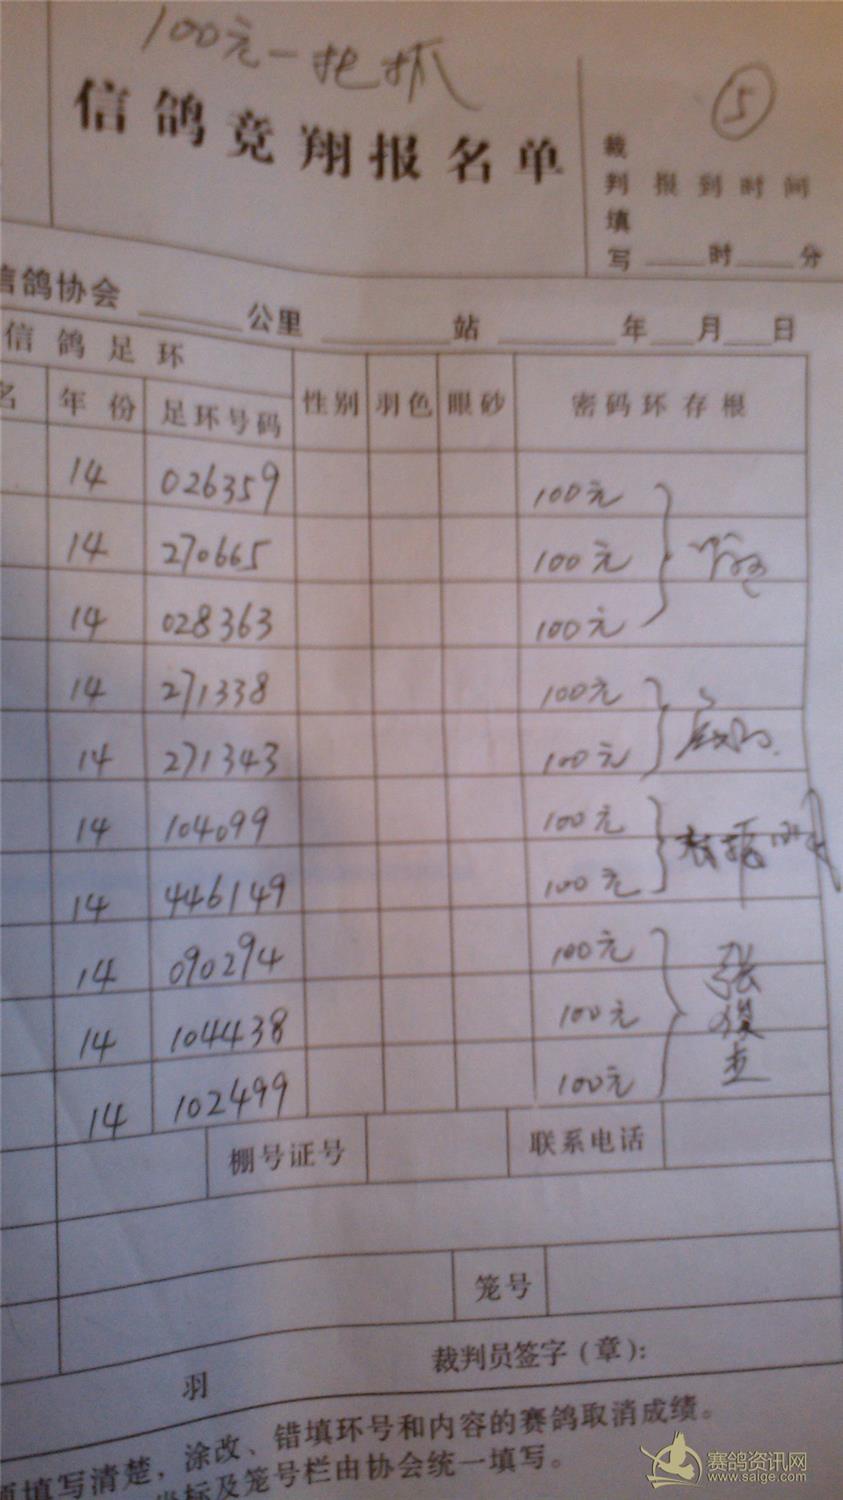 100元一把抓
⑤
信鸽竞翔报名单
裁判填写
报到时间
____时____分
信鸽协会 ______公里 ______站 ______年___月___日
信鸽足环
名 年份 足环号码 性别 羽色 眼砂 密码环存根
14 026359 100元
14 270665 100元
14 028363 100元
14 271338 100元
14 271343 100元
14 104099 100元
14 446149 100元
14 090294 100元
14 104438 100元
14 102499 100元
张
棚号证号 联系电话
笼号
裁判员签字(章):
羽
填写清楚,涂改、错填环号和内容的赛鸽取消成绩。
坐标及笼号栏由协会统一填写。
赛鸽资讯网
www.saige.com